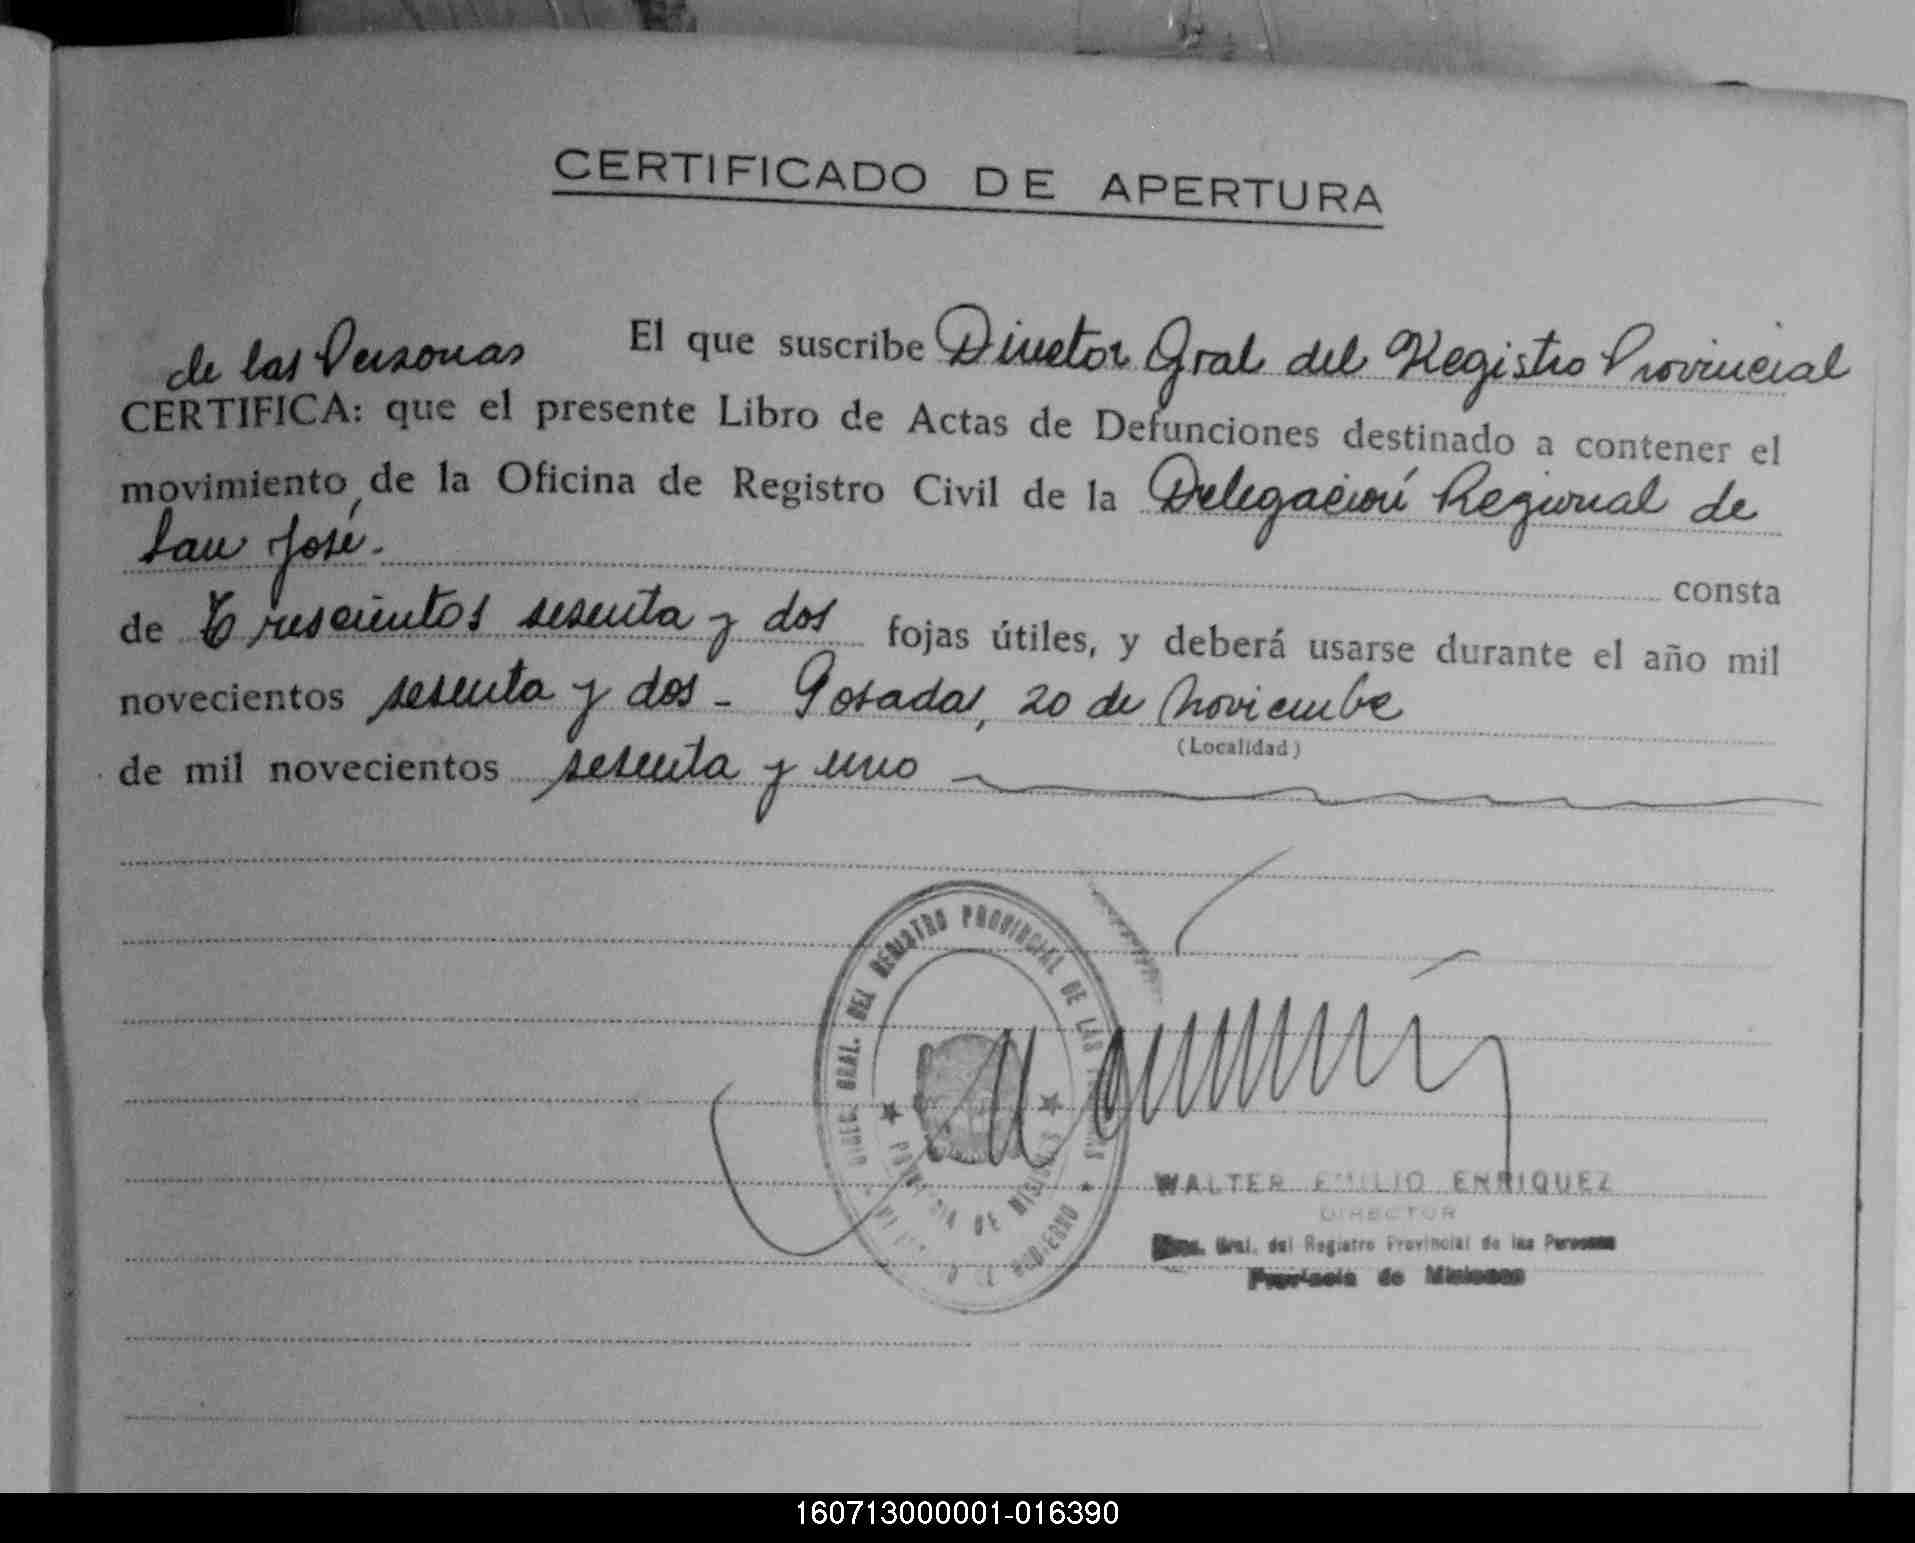 CERTIFICADO DE APERTURA
El que suscribe Director Gral del Registro Provincial
de las Personas
CERTIFICA: que el presente Libro de Actas de Defunciones destinado a contener el
movimiento de la Oficina de Registro Civil de la Delegación Regional de
San José. consta
de Trescientos sesenta y dos fojas útiles, y deberá usarse durante el año mil
novecientos sesenta y dos - Posadas, 20 de Noviembre
(Localidad)
de mil novecientos sesenta y uno
GRAL. DEL REGISTRO PROVINCIAL DE LAS
DE MISIONES
GOBIERNO
WALTER EMILIO ENRIQUEZ
DIRECTOR
Gral. del Registro Provincial de las Personas
Provincia de Misiones
160713000001-016390